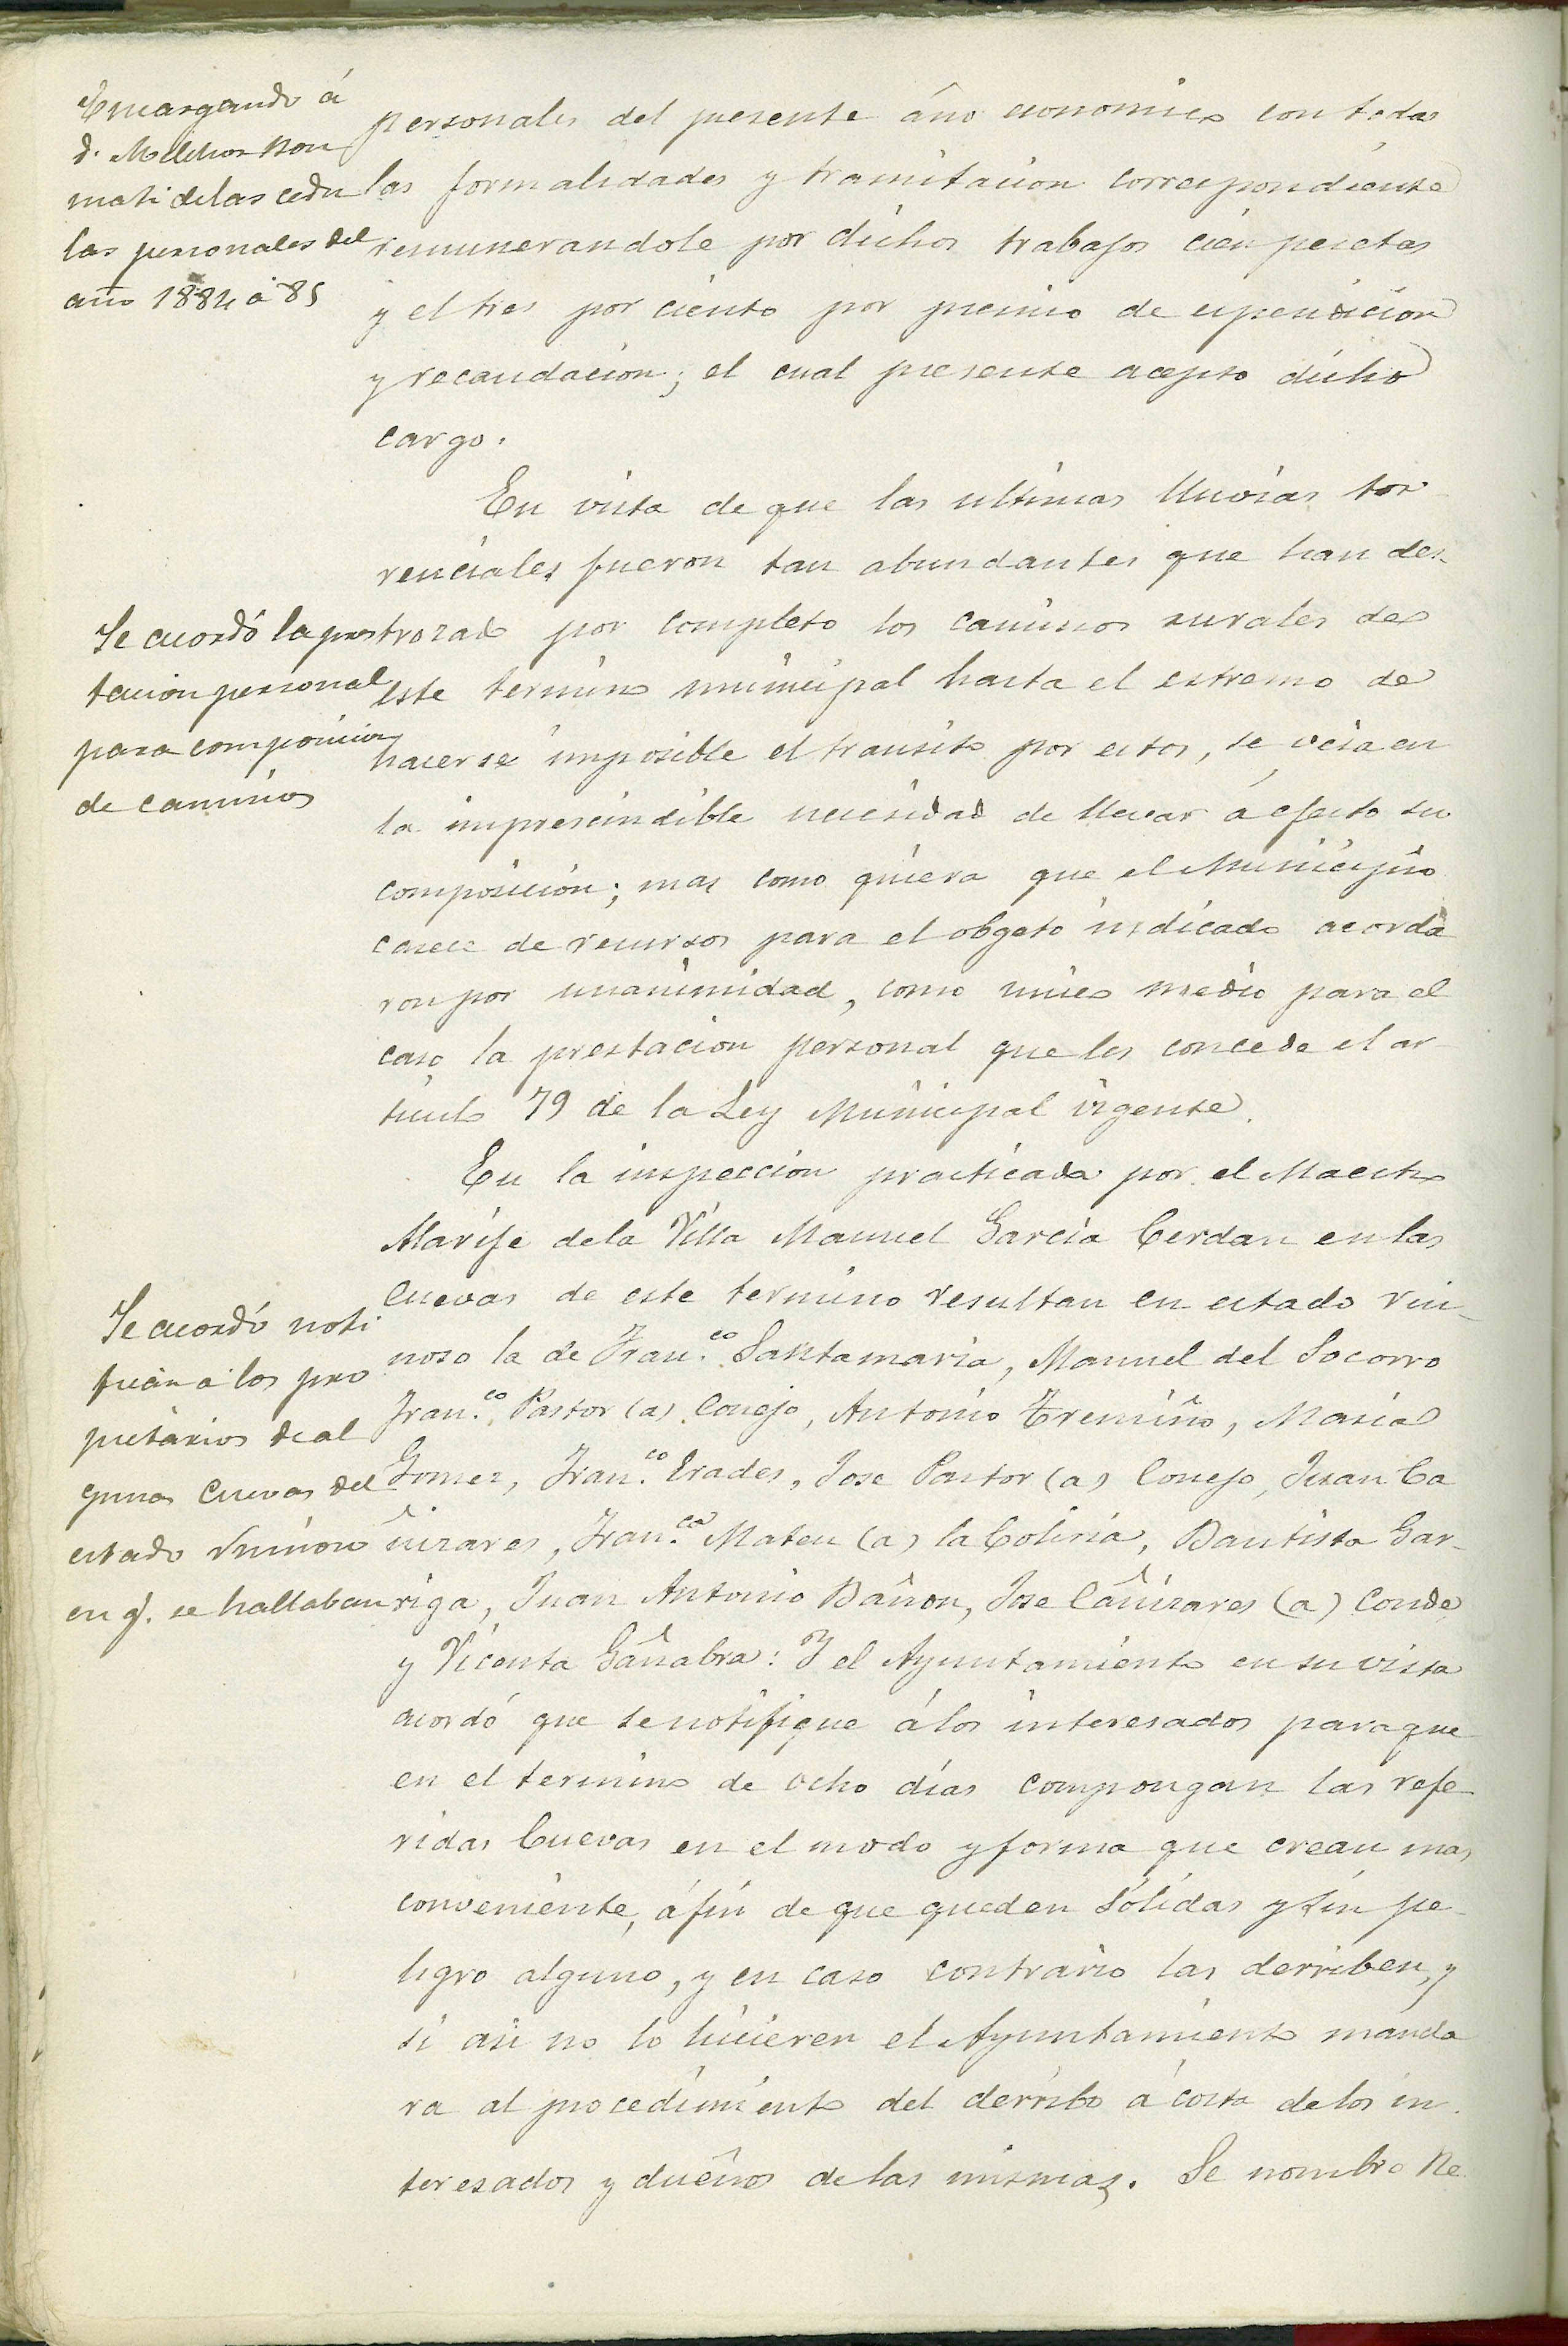 Encargando á
d. Melchor Bon
mati de las cedu
las personales del
año 1884 á 85
personales del presente año economico con todas
las formalidades y tramitacion correspondiente
remunerandole por dichos trabajos cien pesetas
y el tres por ciento por premio de espendicion
y recaudacion; el cual presente acepto dicho
cargo.
En vista de que las ultimas lluvias tor
renciales fueron tan abundantes que han des-
trozado por completo los caminos rurales de
este termino municipal hasta el estremo de
hacerse imposible el transito por estos, se veia en
la imprescindible necesidad de llevar á efecto su
composicion; mas como quiera que el Municipio
carece de recursos para el obgeto indicado acorda
ron por unanimidad, como unico medio para el
caso la prestacion personal que les concede el ar
ticulo 79 de la Ley Municipal vigente.
Se acordó la pres
tacion personal
para composicion
de caminos
En la inspeccion practicada por el Maestro
Alarife de la Villa Manuel García Cerdan en las
Cuevas de este termino resultan en estado rui-
noso la de Fran.co Santamaria, Manuel del Socorro
Fran.co Pastor (a) Conejo, Antonio Tremiño, Maria
Gomez, Fran.co Erades, Jose Pastor (a) Conejo, Juan Ca
ñizares, Fran.ca Mateu (a) la Coliria, Bautista Gar-
riga, Juan Antonio Bañon, Jose Cañizares (a) Conde
y Vicenta Gañabra: Y el Ayuntamiento en su vista
acordó que se notifique á los interesados para que
en el termino de ocho días compongan las refe
ridas Cuevas en el modo y forma que crean mas
conveniente, á fin de que queden sólidas y sin pe-
ligro alguno, y en caso contrario las derriben, y
si asi no lo hicieren el Ayuntamiento manda
ra al procedimiento del derribo á costa de los in-
teresados y dueños de las mismas. Se nombro Re
Se acordó noti
ficar a los pro
pietarios de al
gunas Cuevas del
estado ruinoso
en q. se hallaban